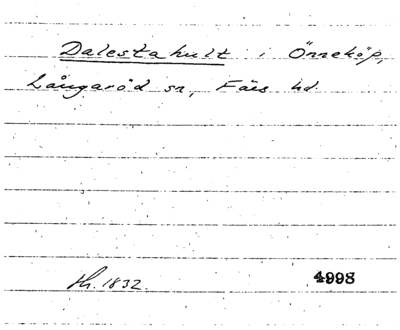 Dalestahult i Önneköp,
Långaröd sn, Färs hd.
Hr. 1832. 4998